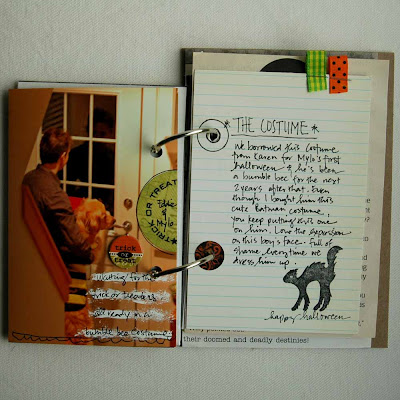 TRICK OR TREAT
Eddie
& Mylo
trick
or
treat
waiting for the
trick or treaters
all ready in a
bumble bee costume
*THE COSTUME*
We borrowed this costume
from Karen for Mylo's first
halloween & he's been
a bumble bee for the next
2 years after that. Even
though I bought him this
cute Batman costume,
you keep putting this one
on him. Love the expression
on this boy's face. Full of
shame everytime we
dress him up.
happy halloween
their doomed and deadly destinies!